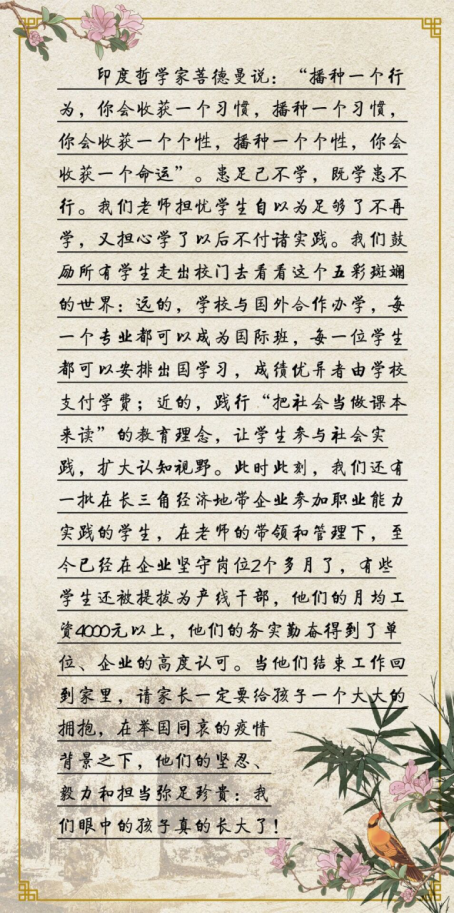 印度哲学家菩德曼说：“播种一个行
为，你会收获一个习惯，播种一个习惯，
你会收获一个个性，播种一个个性，你会
收获一个命运”。患足己不学，既学患不
行。我们老师担忧学生自以为足够了不再
学，又担心学了以后不付诸实践。我们鼓
励所有学生走出校门去看看这个五彩斑斓
的世界：远的，学校与国外合作办学，每
一个专业都可以成为国际班，每一位学生
都可以安排出国学习，成绩优异者由学校
支付学费；近的，践行“把社会当做课本
来读”的教育理念，让学生参与社会实
践，扩大认知视野。此时此刻，我们还有
一批在长三角经济地带企业参加职业能力
实践的学生，在老师的带领和管理下，至
今已经在企业坚守岗位2个多月了，有些
学生还被提拔为产线干部，他们的月均工
资4000元以上，他们的务实勤奋得到了单
位、企业的高度认可。当他们结束工作回
到家里，请家长一定要给孩子一个大大的
拥抱，在举国同哀的疫情
背景之下，他们的坚忍、
毅力和担当弥足珍贵：我
们眼中的孩子真的长大了！